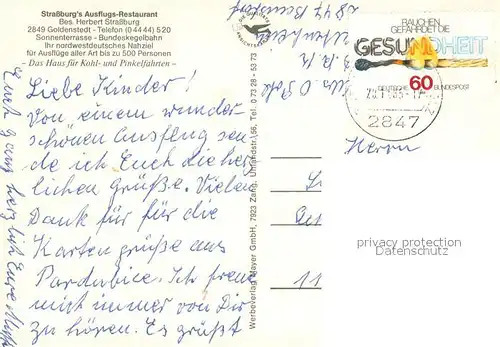 Straßburg's Ausflugs-Restaurant
Bes. Herbert Straßburg
2849 Goldenstedt - Telefon (0 44 44) 520
Sonnenterrasse - Bundeskegelbahn
Ihr nordwestdeutsches Nahziel
für Ausflüge aller Art bis zu 500 Personen
Das Haus für Kohl- und Pinkelfahrten –
Liebe Kinder!
Von einem wunder
schönen Ausfeug sen
de ich Euch die her
lichen grüße. Vielen
Dank für für die
Karten grüße aus
Pardubice. Ich freue
mich immer von Dir
zu hören. Es grüßt
Euch ganz herz lich Eure
Werbeverlag Mayer GmbH, 7923 Zang, Uhlandstr. 56, Tel. 0 73 28 - 53 73
2847
RAUCHEN
GEFÄHRDET DIE
GESUNDHEIT
DEUTSCHE BUNDESPOST
60
2847
Herrn
11
privacy protection
DSGVO